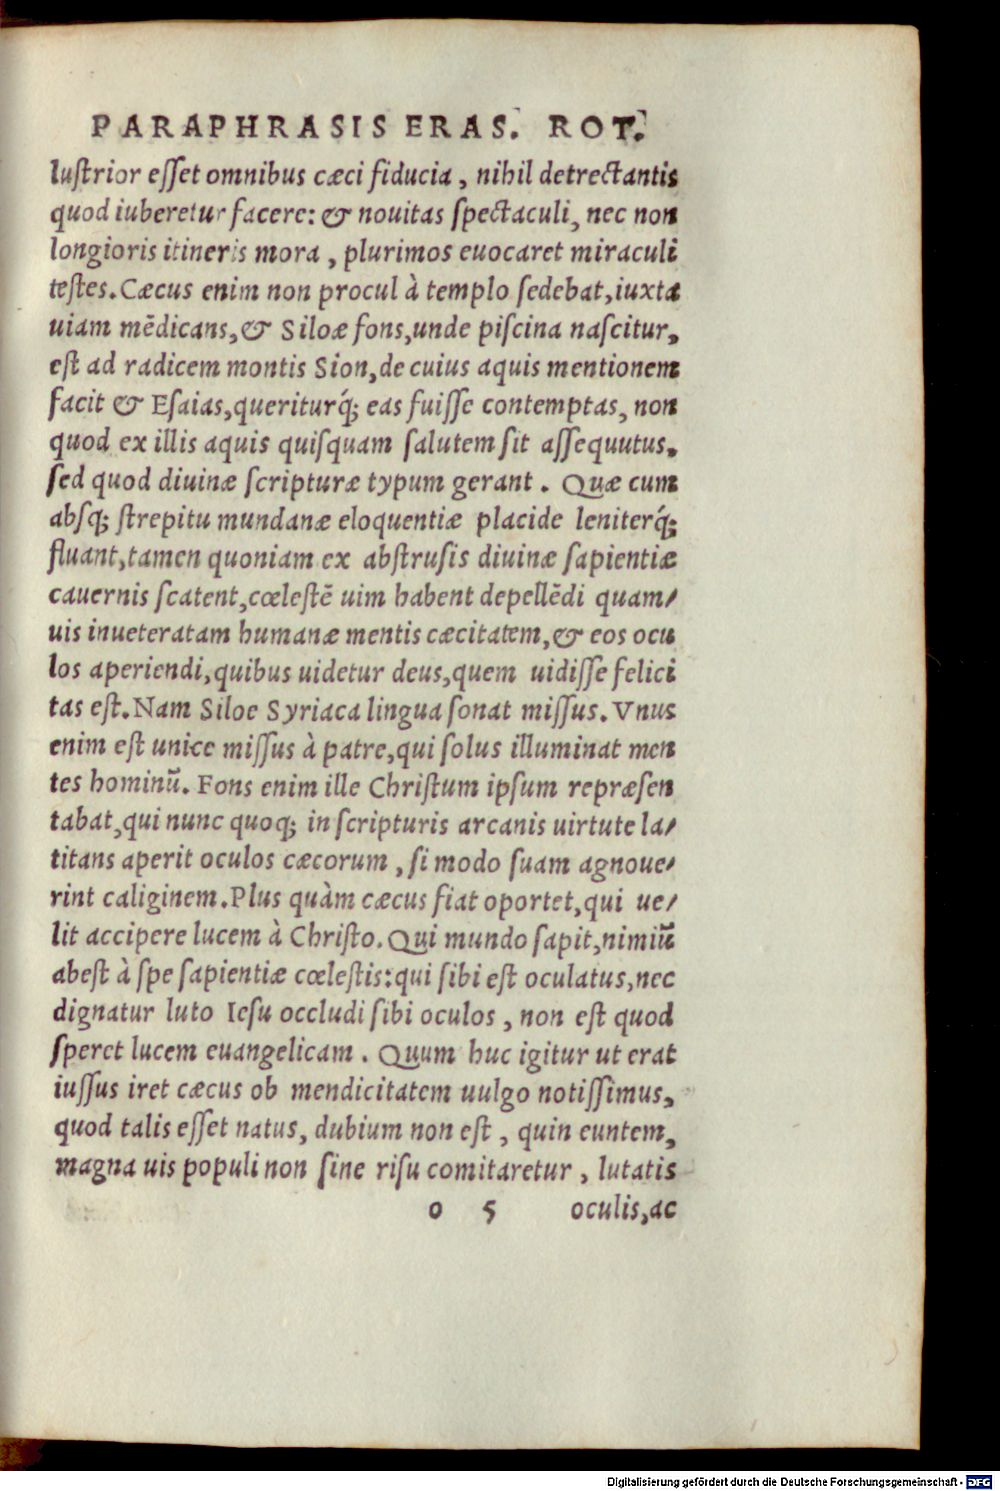 PARAPHRASIS ERAS. ROT.
lustrior esset omnibus cæci fiducia, nihil detrectantis
quod iuberetur facere: & nouitas spectaculi, nec non
longioris itineris mora, plurimos euocaret miraculi
testes. Cæcus enim non procul à templo sedebat, iuxta
uiam mēdicans, & Siloæ fons, unde piscina nascitur,
est ad radicem montis Sion, de cuius aquis mentionem
facit & Esaias, queriturq́; eas fuisse contemptas, non
quod ex illis aquis quisquam salutem sit assequutus.
sed quod diuinæ scripturæ typum gerant. Quæ cum
absq; strepitu mundanæ eloquentiæ placide leniterq́;
fluant, tamen quoniam ex abstrusis diuinæ sapientiæ
cauernis scatent, cœlestē uim habent depellēdi quam/
uis inueteratam humanæ mentis cæcitatem, & eos ocu
los aperiendi, quibus uidetur deus, quem uidisse felici
tas est. Nam Siloe Syriaca lingua sonat missus. Vnus
enim est unice missus à patre, qui solus illuminat men
tes hominū. Fons enim ille Christum ipsum repræsen
tabat, qui nunc quoq; in scripturis arcanis uirtute la/
titans aperit oculos cæcorum, si modo suam agnoue/
rint caliginem. Plus quàm cæcus fiat oportet, qui ue/
lit accipere lucem à Christo. Qui mundo sapit, nimiū
abest à spe sapientiæ cœlestis: qui sibi est oculatus, nec
dignatur luto Iesu occludi sibi oculos, non est quod
speret lucem euangelicam. Quum huc igitur ut erat
iussus iret cæcus ob mendicitatem uulgo notissimus,
quod talis esset natus, dubium non est, quin euntem,
magna uis populi non sine risu comitaretur, lutatis
o 5 oculis, ac
Digitalisierung gefördert durch die Deutsche Forschungsgemeinschaft - DFG